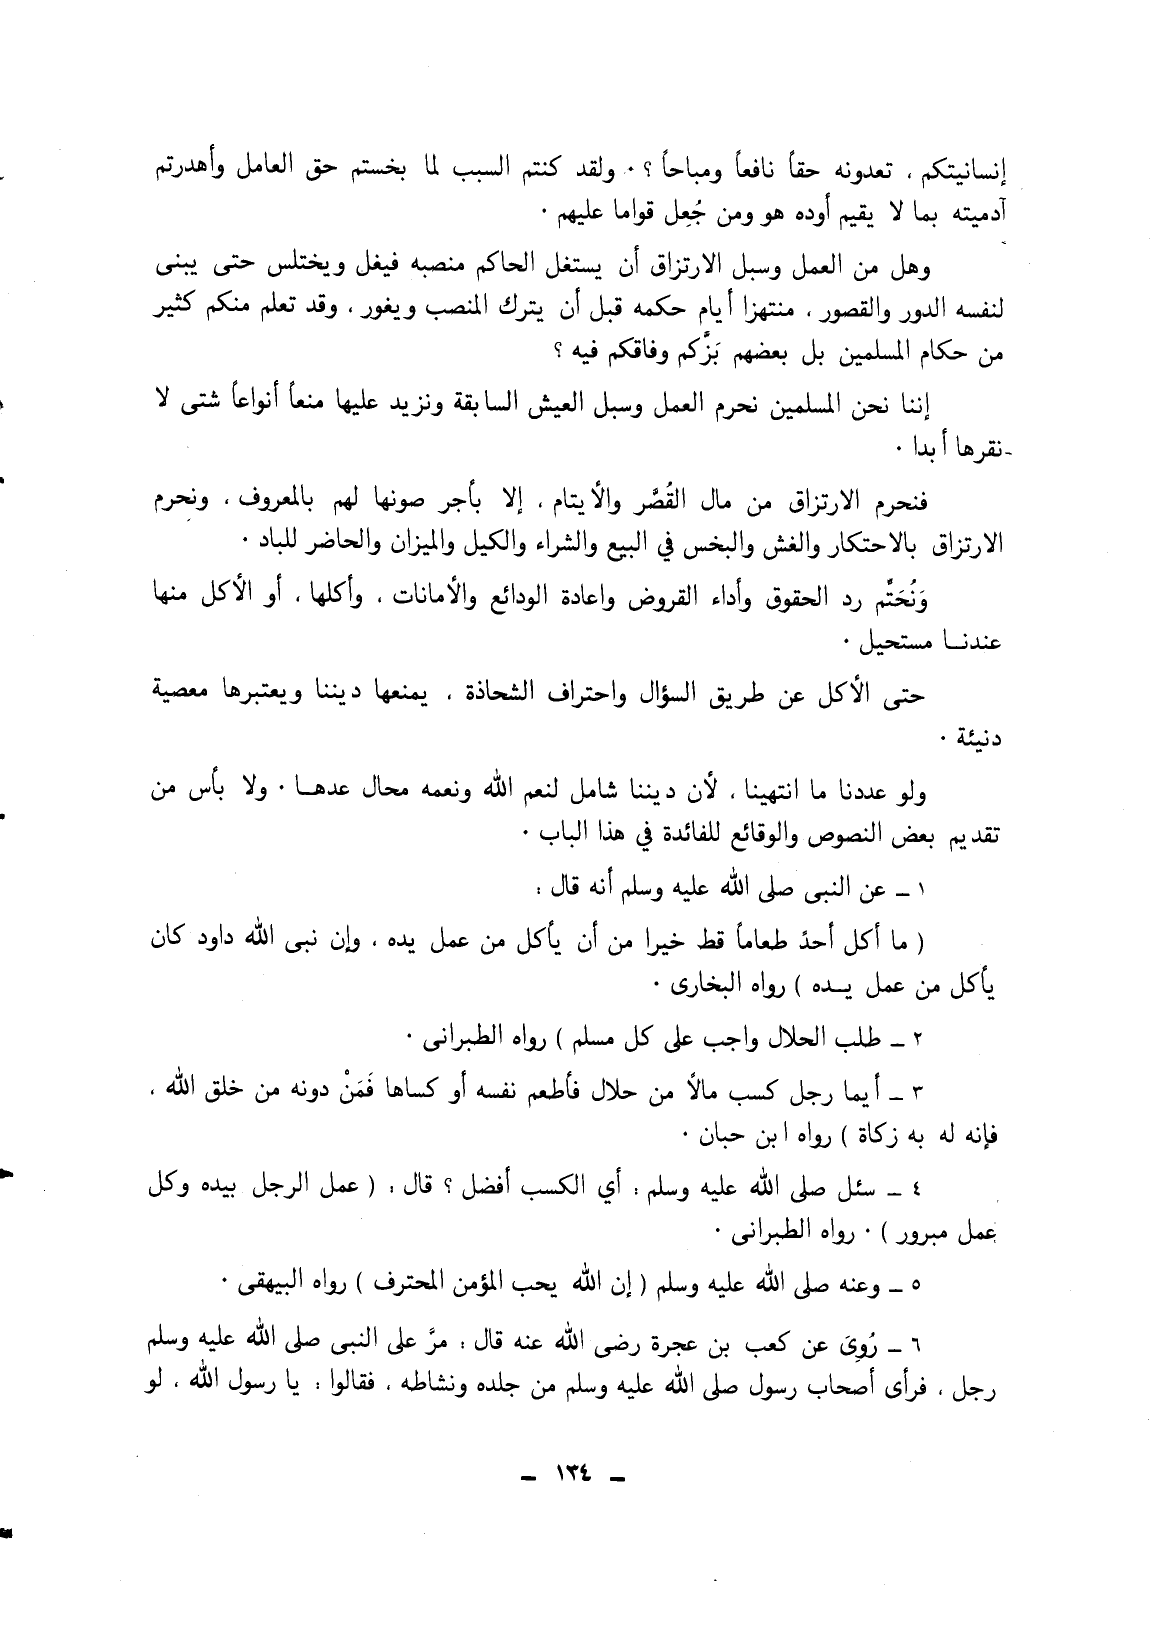 إنسانيتكم ، تعدونه حقاً نافعاً ومباحاً ؟ ٠ ولقد كنتم السبب لما بخستم حق العامل وأهدرتم
آدميته بما لا يقيم أوده هو ومن جُعِل قواما عليهم ٠
وهل من العمل وسبل الارتزاق أن يستغل الحاكم منصبه فيغل ويختلس حتى يبنى
لنفسه الدور والقصور ، منتهزا أيام حكمه قبل أن يترك المنصب ويغور ، وقد تعلم منكم كثير
من حكام المسلمين بل بعضهم بَزَّكم وفاقكم فيه ؟
إننا نحن المسلمين نحرم العمل وسبل العيش السابقة ونزيد عليها منعاً أنواعاً شتى لا
نقرها أبدا ٠
فنحرم الارتزاق من مال القُصَّر والأيتام ، إلا بأجر صونها لهم بالمعروف ، ونحرم
الارتزاق بالاحتكار والغش والبخس في البيع والشراء والكيل والميزان والحاضر للباد ٠
وَنُحَتَّم رد الحقوق وأداء القروض واعادة الودائع والأمانات ، وأكلها ، أو الأكل منها
عندنـا مستحيل ٠
حتى الأكل عن طريق السؤال واحتراف الشحاذة ، يمنعها ديننا ويعتبرها معصية
دنيئة ٠
ولو عددنا ما انتهينا ، لأن ديننا شامل لنعم الله ونعمه محال عدهـا ٠ ولا بأس من
تقديم بعض النصوص والوقائع للفائدة في هذا الباب ٠
١ ـ عن النبى صلى الله عليه وسلم أنه قال :
( ما أكل أحدً طعاماً قط خيرا من أن يأكل من عمل يده ، وإن نبى الله داود كان
يأكل من عمل يـده ) رواه البخارى ٠
٢ ـ طلب الحلال واجب على كل مسلم ) رواه الطبرانى ٠
٣ ـ أيما رجل كسب مالاً من حلال فأطعم نفسه أو كساها فَمَنْ دونه من خلق الله ،
فإنه له به زكاة ) رواه ابن حبان ٠
٤ ـ سئل صلى الله عليه وسلم : أي الكسب أفضل ؟ قال : ( عمل الرجل بيده وكل
عمل مبرور ) ٠ رواه الطبرانى ٠
٥ ـ وعنه صلى الله عليه وسلم ( إن الله يحب المؤمن المحترف ) رواه البيهقى ٠
٦ ـ رُوِىَ عن كعب بن عجرة رضى الله عنه قال : مرَّ على النبى صلى الله عليه وسلم
رجل ، فرأى أصحاب رسول صلى الله عليه وسلم من جلده ونشاطه ، فقالوا : يا رسول الله ، لو
ـ ١٣٤ ـ